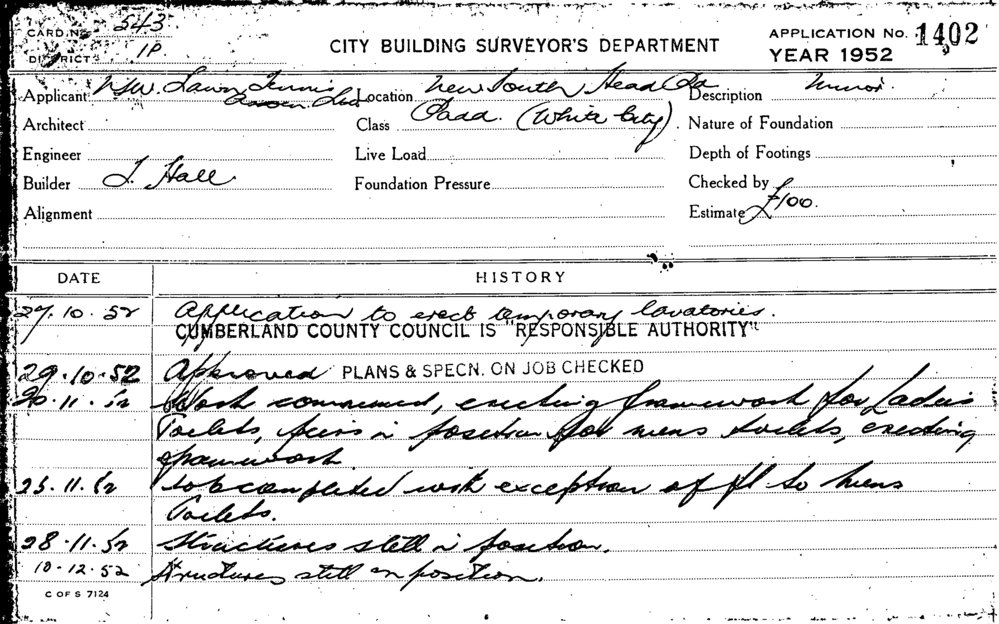 CARD NO. 543
DISTRICT 1P.
CITY BUILDING SURVEYOR'S DEPARTMENT
APPLICATION No. 1402
YEAR 1952
Applicant NSW. Lawn Tennis Assn Ltd
Location New South Head Rd
Padd. (White City).
Description Minor.
Architect
Class
Nature of Foundation
Engineer
Live Load
Depth of Footings
Builder J. Hall.
Foundation Pressure
Checked by
Alignment
Estimate £100.
DATE HISTORY
27.10.52 Application to erect temporary lavatories.
CUMBERLAND COUNTY COUNCIL IS "RESPONSIBLE AUTHORITY"
29.10.52 Approved PLANS & SPECN. ON JOB CHECKED
20.11.52 Work commenced, erecting framework for Ladies
Toilets, piers in position for mens toilets, erecting
framework.
25.11.52 Job completed with exception of fl to mens
Toilets.
28.11.52 Structures still in position.
10.12.52 Structures still in position.
C OF S 7124